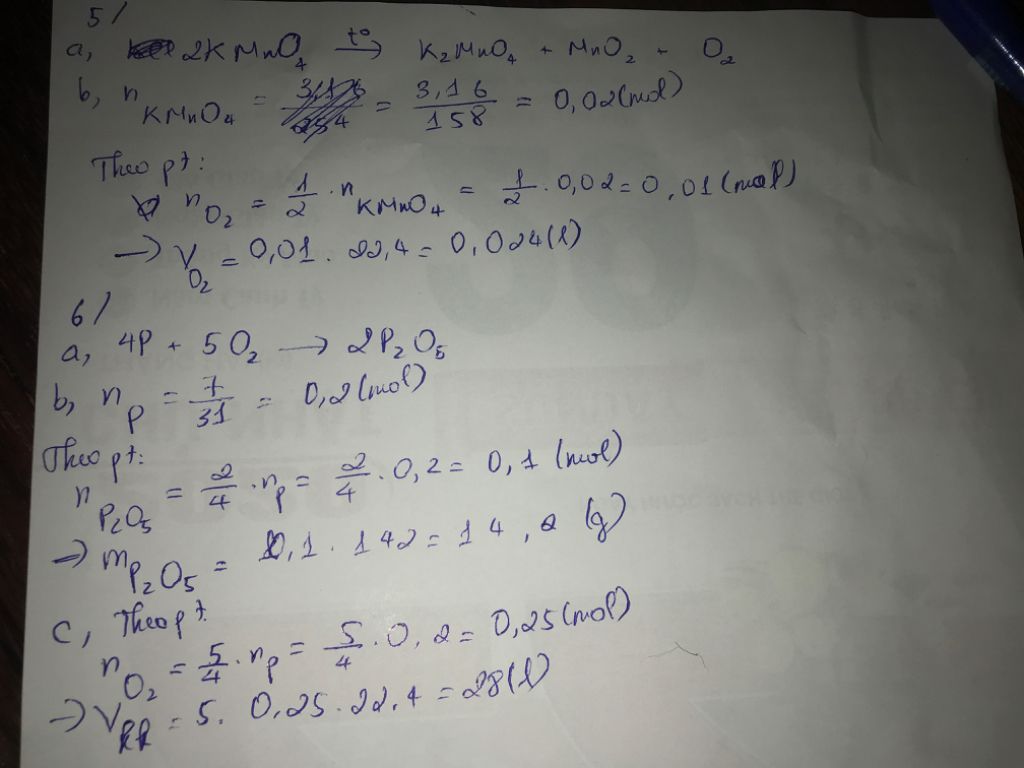 5/
a, 2KMnO₄ t°→ K₂MnO₄ + MnO₂ + O₂
b, n KMnO₄ = = 3,16/158 = 0,02(mol)
Theo pt:
n O₂ = 1/2 . n KMnO₄ = 1/2 . 0,02 = 0,01(mol)
→ V O₂ = 0,01 . 22,4 = 0,024(l)
6/
a, 4P + 5O₂ → 2P₂O₅
b, n P = 7/31 = 0,2(mol)
Theo pt:
n P₂O₅ = 2/4 . n P = 2/4 . 0,2 = 0,1 (mol)
→ m P₂O₅ = 0,1 . 142 = 14,2 (g)
c, Theo pt:
n O₂ = 5/4 . n P = 5/4 . 0,2 = 0,25(mol)
→ V KK = 5. 0,25 . 22,4 = 28(l)